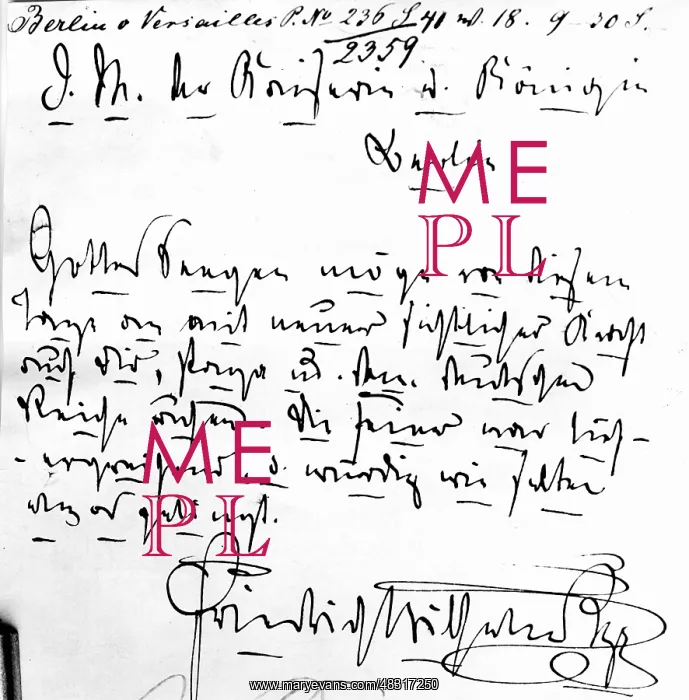 Berlin v Versailles P. No 236 S 41 w. 18. 9 30 S.
2359.
I. M. der Kaiserin u. Königin
Berlin
Gottes Seegen möge von diesem
Tage an mit neuer sichtlicher Kraft
auf Dir, Papa u. dem deutschen
Reiche ruhen. Die Feier war tief-
-ergreifend u. würdig wie selten
Friedrich Wilhelm Kpz
ME
PL
ME
PL
www.maryevans.com/48317250